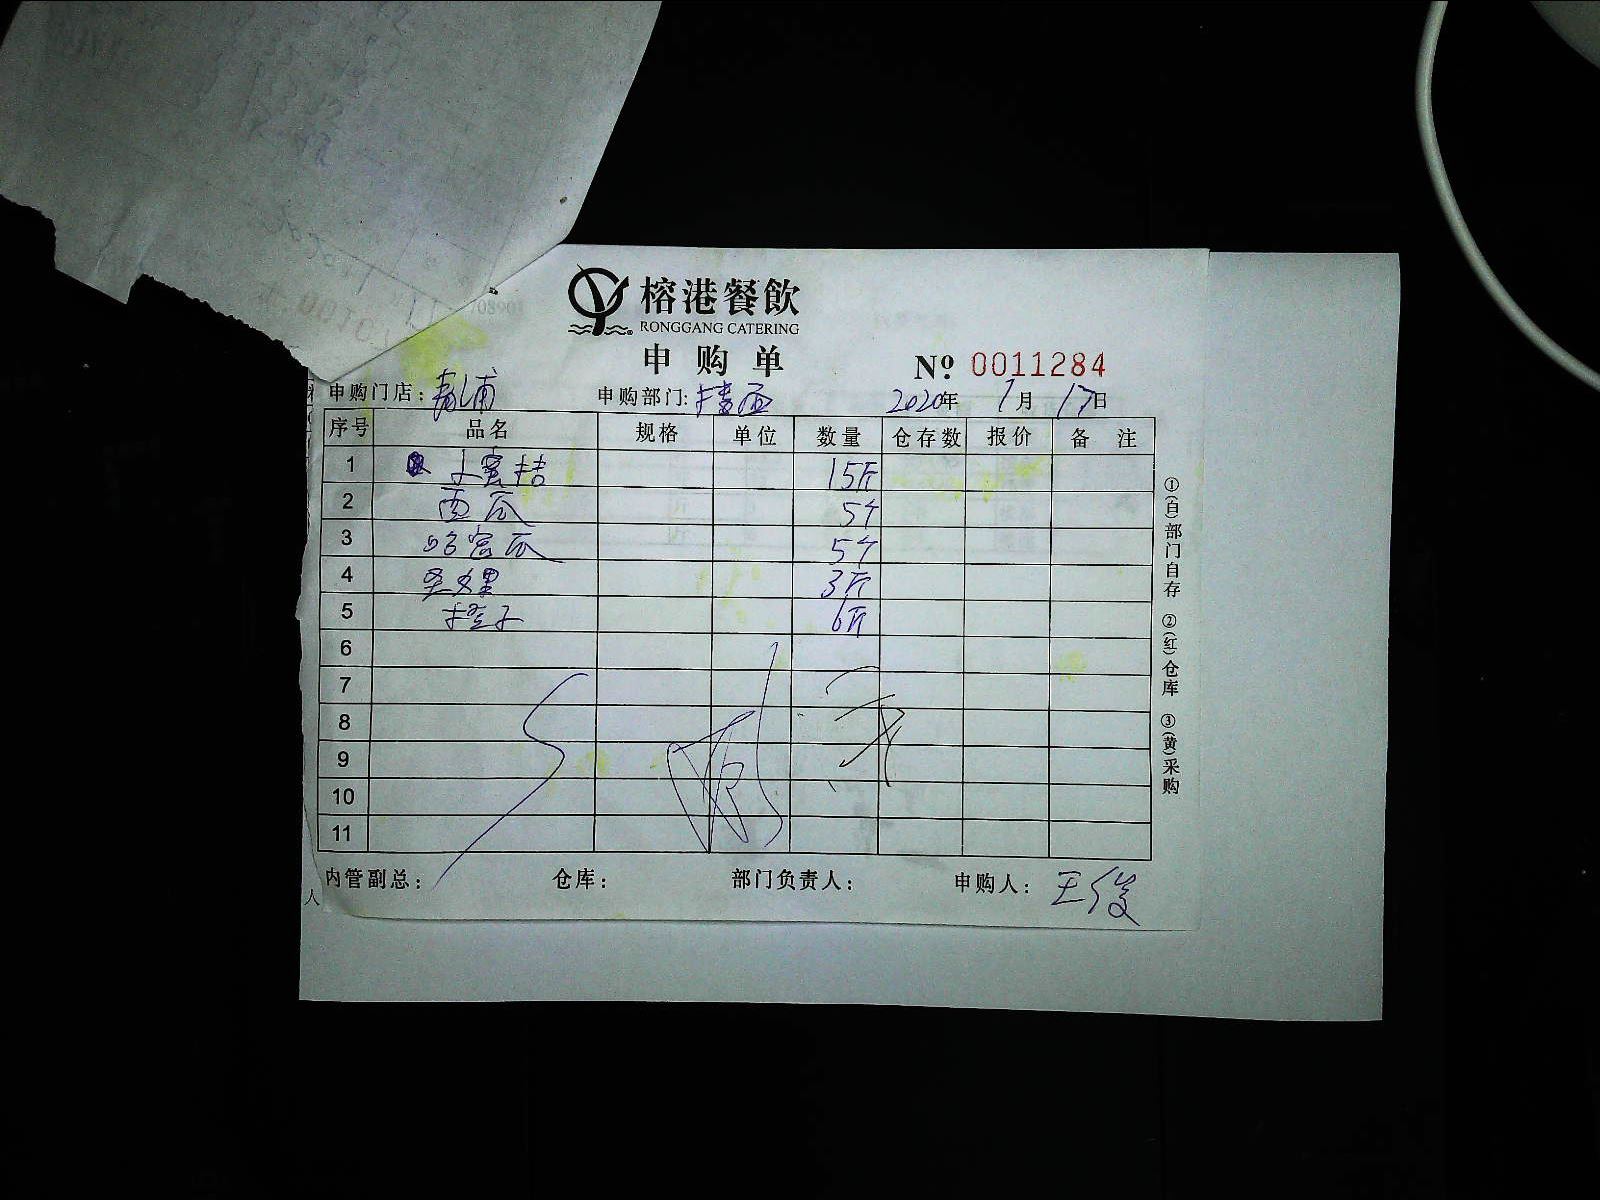 榕港餐飲
RONGGANG CATERING
申购单
Nº 0011284
申购门店: 青浦 申购部门: 楼面 2020年 1月 17日
序号 品名 规格 单位 数量 仓存数 报价 备注
1 小蜜桔 15斤
2 西瓜 5个
3 哈密瓜 5个
4 圣女果 3斤
5 橙子 6斤
6
7
8
9
10
11
内管副总: 仓库: 部门负责人: 申购人: 王俊
①(白)部门自存 ②(红)仓库 ③(黄)采购